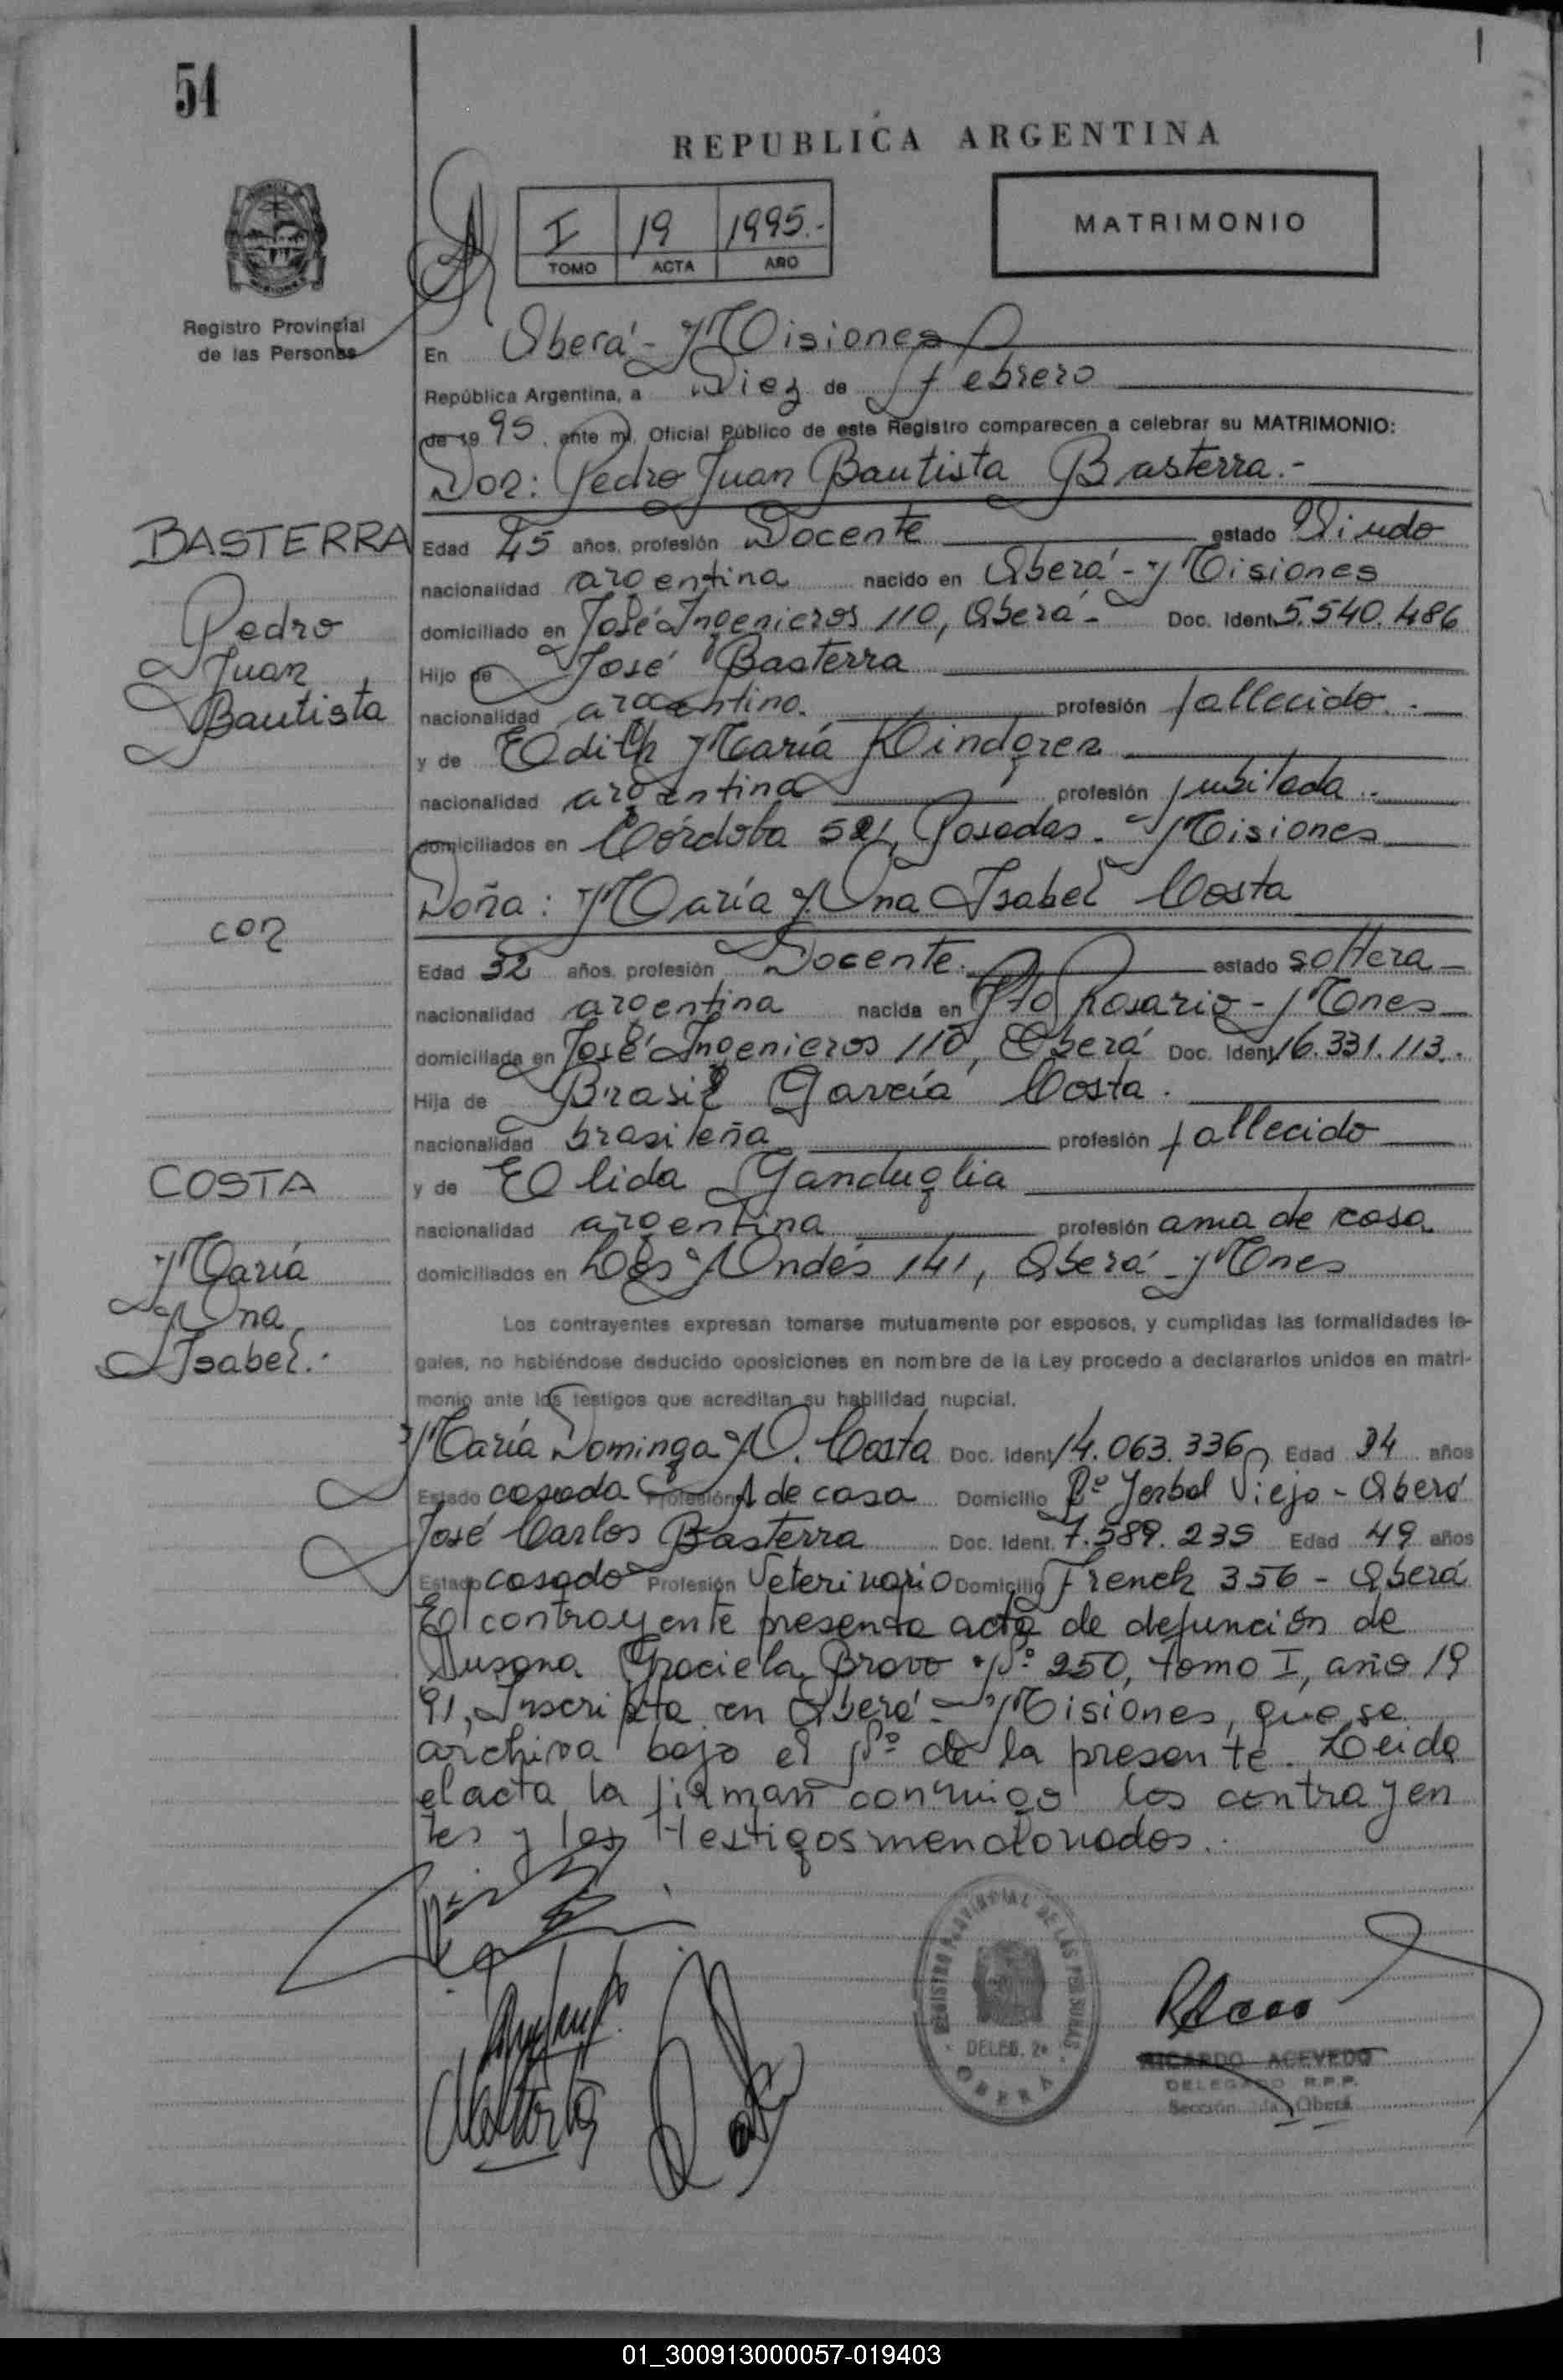 51
REPUBLICA ARGENTINA
I 19 1995.-
TOMO ACTA AÑO
MATRIMONIO
Registro Provincial
de las Personas
En Oberá - Misiones
República Argentina, a Diez de febrero
de 1995, ante mí, Oficial Público de este Registro comparecen a celebrar su MATRIMONIO:
Don: Pedro Juan Bautista Basterra.-
BASTERRA
Pedro
Juan
Bautista
Edad 45 años, profesión Docente estado Viudo
nacionalidad argentina nacido en Oberá - Misiones
domiciliado en José Ingenieros 110, Oberá - Doc. Ident. 5.540.486
Hijo de José Basterra
nacionalidad argentino. profesión fallecido.-
y de Edith María Kindgren
nacionalidad argentina profesión jubilada.-
domiciliados en Córdoba Posadas - Misiones
con
Doña: María Ana Isabel Costa
Edad 32 años, profesión Docente. estado soltera
nacionalidad argentina nacida en Pto Rosario - Mones
domiciliada en José Ingenieros 110, Oberá Doc. Ident. 16.331.113.
Hija de Brasil García Costa.
nacionalidad brasileña profesión fallecido
COSTA
María
Ana
Isabel.-
y de Elida Ganduglia
nacionalidad argentina profesión ama de casa
domiciliados en Los Andes 141, Oberá - Mnes
Los contrayentes expresan tomarse mutuamente por esposos, y cumplidas las formalidades le-
gales, no habiéndose deducido oposiciones en nombre de la Ley procedo a declararlos unidos en matri-
monio ante los testigos que acreditan su habilidad nupcial.
María Dominga A. Costa Doc. Ident. 14.063.336 Edad 34 años
Estado casada Profesión A de casa Domicilio Bº Yerbal Viejo - Oberá
José Carlos Basterra Doc. Ident. 7.589.235 Edad 49 años
Estado casado Profesión Veterinario Domicilio French 356 - Oberá
El contrayente presenta acta de defunción de
Susana Graciela Bravo Nº 250, tomo I, año 19
91, Inscripta en Oberá - Misiones, que se
archiva bajo el Nº de la presente. Leida
el acta la firman conmigo los contrayen
tes y los testigos mencionados.
REGISTRO PROVINCIAL DE LAS PERSONAS
DELEG. 2ª
OBERA
RICARDO ACEVEDO
DELEGADO R.P.P.
Sección 2da. Oberá
01_300913000057-019403